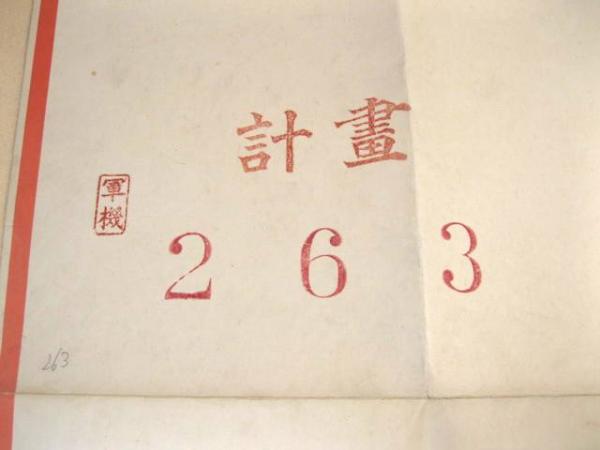 計畫
軍機
2 6 3
263